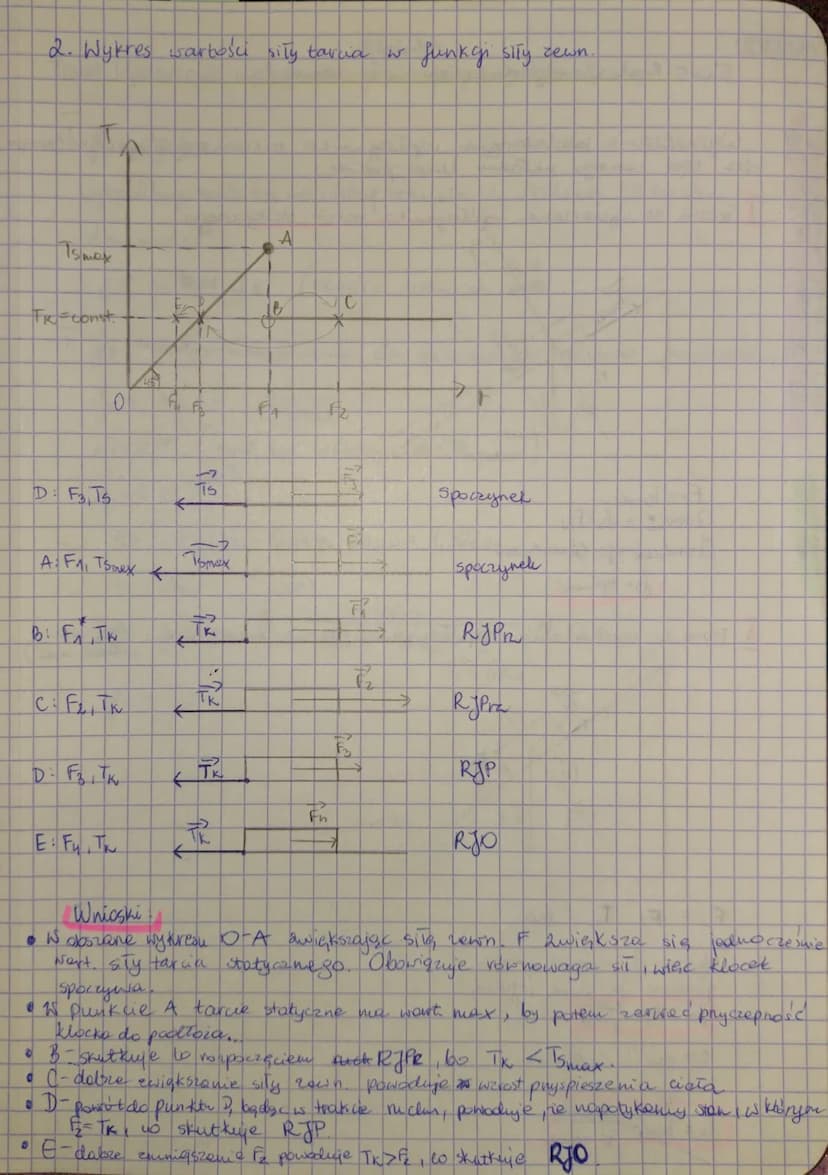 2. Wykres wartości siły tarcia w funkcji siły zewn.
T
Tsmax
A
E D B C
TK = const.
45°
0 F4 F3 F1 F2 F
D: F3, Ts Ts F3 spoczynek
A: F1, Tsmax Tsmax F1 spoczynek
B: F1*, TK TK F1 RJPrz
C: F2, TK TK F2 RJPrz
D: F3, TK TK F3 RJP
E: F4, TK TK F4 RJO
Wnioski:
• W obszarze wykresu O-A zwiększając siłę zewn. F zwiększa się jednocześnie
wart. siły tarcia statycznego. Obowiązuje równowaga sił, więc klocek
spoczywa.
• W punkcie A tarcie statyczne ma wart. max, by potem zerwać przyczepność
klocka do podłoża...
• B - skutkuje to rozpoczęciem RJPrz, bo TK < Tsmax.
• C - dalsze zwiększanie siły zewn. powoduje wzrost przyspieszenia ciała
• D - powrót do punktu będąc w trakcie ruchu, powoduje, że napotykamy stan, w którym
= TK, co skutkuje RJP.
• E - dalsze zmniejszenie powoduje TK > , co skutkuje RJO.